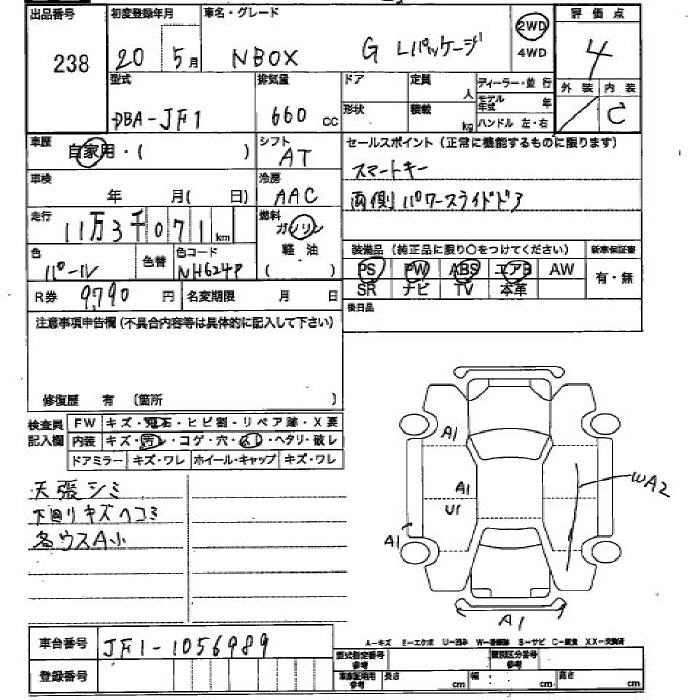 出品番号 初度登録年月 車名・グレード 2WD 評価点
238 20 5月 NBOX G Lパッケージ 4WD 4
型式 排気量 ドア 定員 人 ディーラー・並行 外装 内装
DBA-JF1 660 cc 形状 積載 kg モデル年式 年 C
ハンドル 左・右
車歴 自家用・( ) シフト AT セールスポイント(正常に機能するものに限ります)
スマートキー
車検 年 月( 日) 冷房 AAC 両側パワースライドドア
走行 11万3千071km 燃料 ガソリン
軽油
( )
色 パール 色替 色コード NH624P 装備品(純正品に限り○をつけてください) 新車保証書
PS PW ABS エアB AW 有・無
R券 9,790円 名変期限 月 日 SR ナビ TV 本革
注意事項申告欄(不具合内容等は具体的に記入して下さい) 後日品
修復歴 有 (箇所 )
検査員記入欄 FW キズ・飛石・ヒビ割・リペア跡・X要
内装 キズ・汚レ・コゲ・穴・ ・ヘタリ・破レ
ドアミラー キズ・ワレ ホイール・キャップ キズ・ワレ
天張シミ
下回りキズヘコミ
各ウスA小
A1
A1
U1
WA2
A1
A1
車台番号 JF1-1056989
A-キズ E-エクボ U-凹み W-補修跡 S-サビ C-腐食 XX-交換済
登録番号 型式指定番号 参考 類別区分番号 参考
車庫証明用 参考 長さ cm 幅 cm 高さ cm